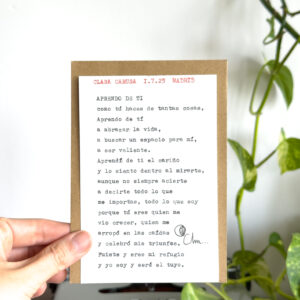 CLARA CAMUSA 1.7.23 MADRID
APRENDO DE TI
como tú haces de tantas cosas,
Aprendo de ti
a abrazar la vida,
a buscar un espacio para mí,
a ser valiente.
Aprendí de ti el cariño
y lo siento dentro al mirarte,
aunque no siempre acierte
a decirte todo lo que
me importas, todo lo que soy
porque tú eres quien me
vio crecer, quien me
arropó en las caídas
y celebró mis triunfos.
Fuiste y eres mi refugio
y yo soy y seré el tuyo.